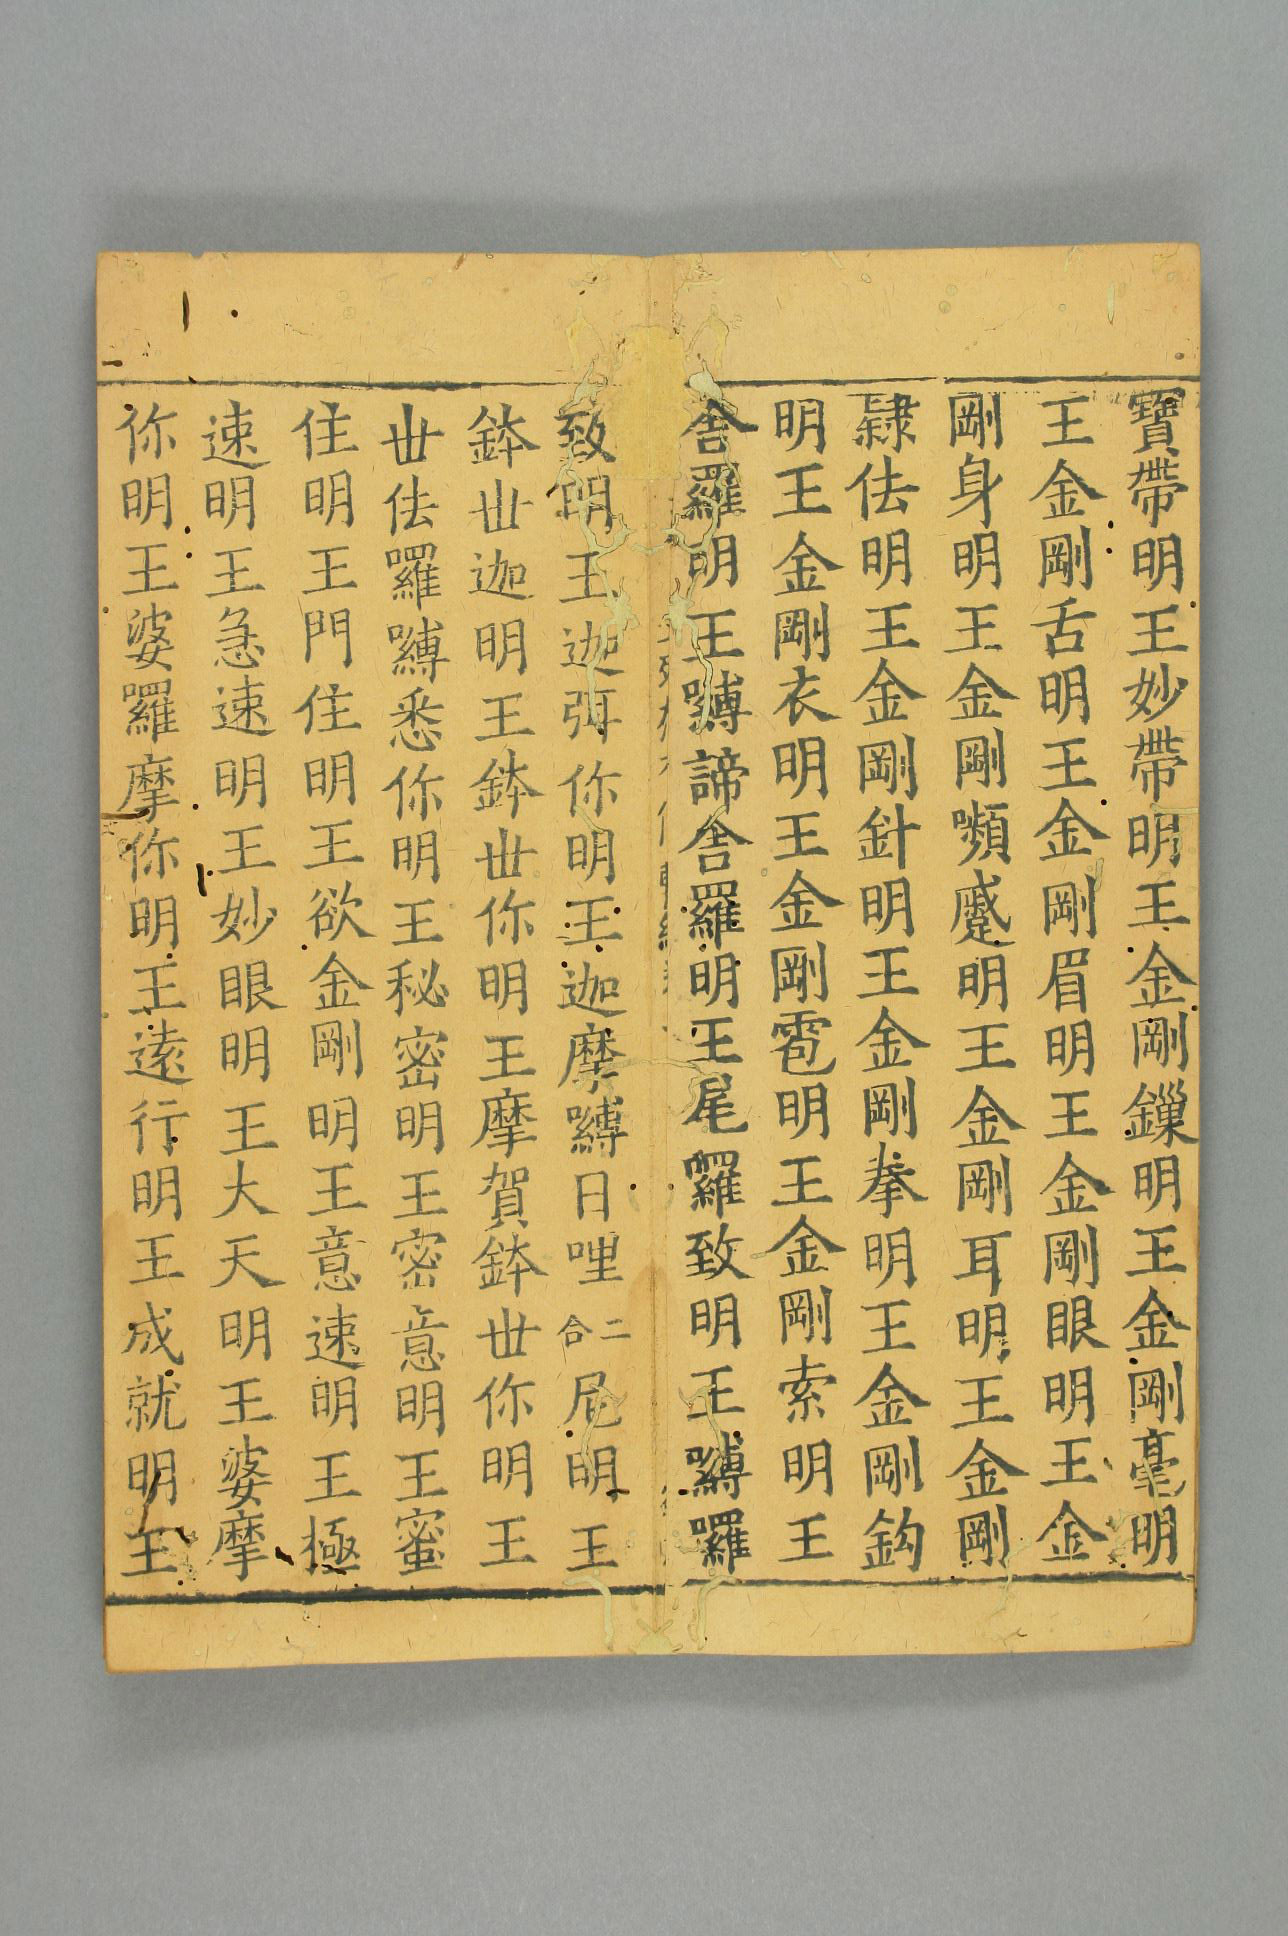 寶帶明王妙帶明王金剛鏁明王金剛毫明
王金剛舌明王金剛眉明王金剛眼明王金
剛身明王金剛嚬蹙明王金剛耳明王金剛
隷佉明王金剛針明王金剛拳明王金剛鈎
明王金剛衣明王金剛雹明王金剛索明王
舍羅明王嚩諦舍羅明王尾囉致明王嚩囉
致明王迦弭你明王迦摩嚩日哩二合尼明王
鉢丗迦明王鉢丗你明王摩賀鉢丗你明王
丗佉囉嚩悉你明王秘密明王密意明王蜜
住明王門住明王欲金剛明王意速明王極
速明王急速明王妙眼明王大天明王婆摩
你明王婆囉摩你明王遠行明王成就明王